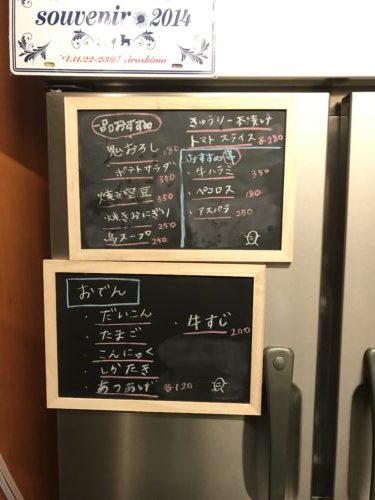 souvenir 2014
'14.11.22-23@Hiroshima
一品おすすめ
鬼おろし 180
ポテトサラダ 350
焼き空豆 350
焼きおにぎり 250
鳥スープ 250
きゅうり一本漬け
トマトスライス 各280
おすすめ串
・牛ハラミ 350
・ペコロス 180
・アスパラ 250
おでん
・だいこん
・たまご
・こんにゃく
・しらたき
・あつあげ 各120
・牛すじ 200